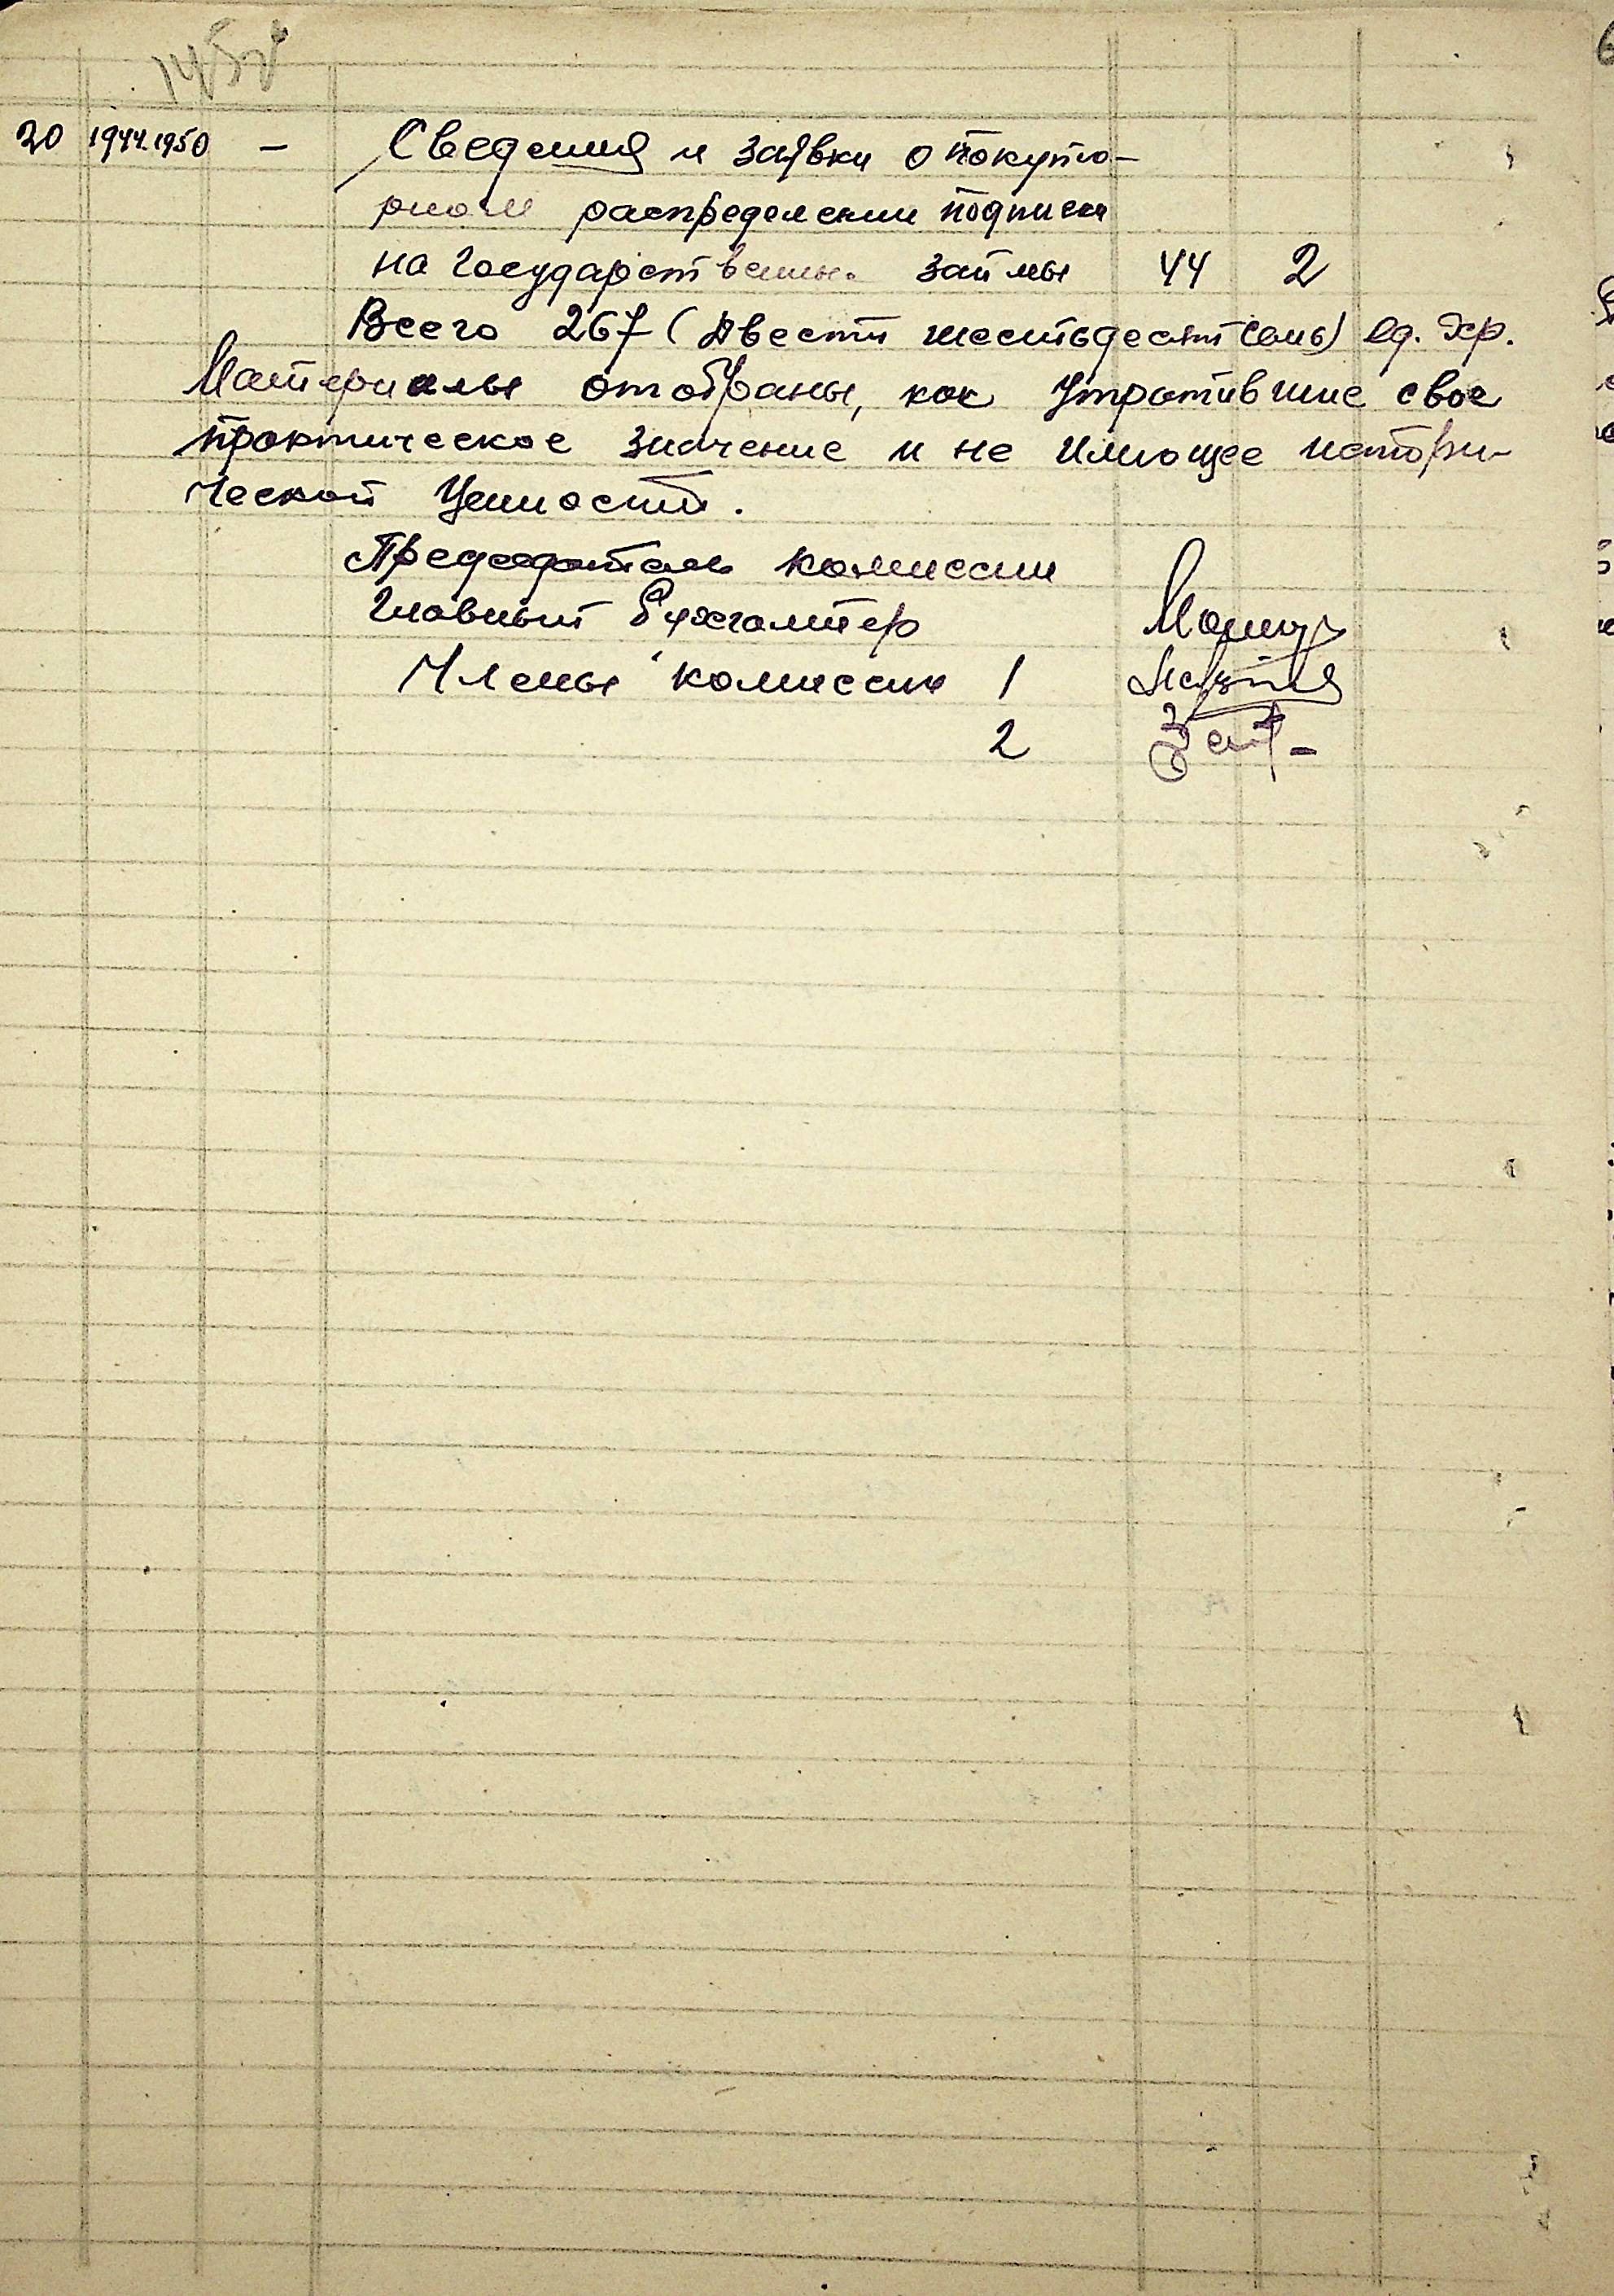 20 1944-1950 — Сведения и заявки о покупю-
рном распределении подписки
на Государственные займы 44 2
Всего 267 (Двести шестьдесят семь) ед. хр.
Материалы отобраны, как утратившие свое
практическое значение и не имющее истори-
ческой ценности.
Председатель комиссии
Главный бухгалтер
Члены комиссии 1
2